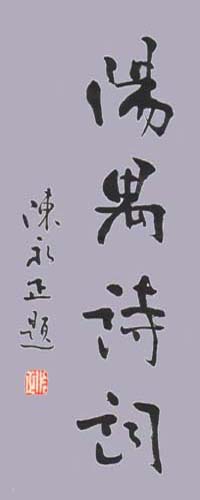 陽禺詩詞
陳永正題